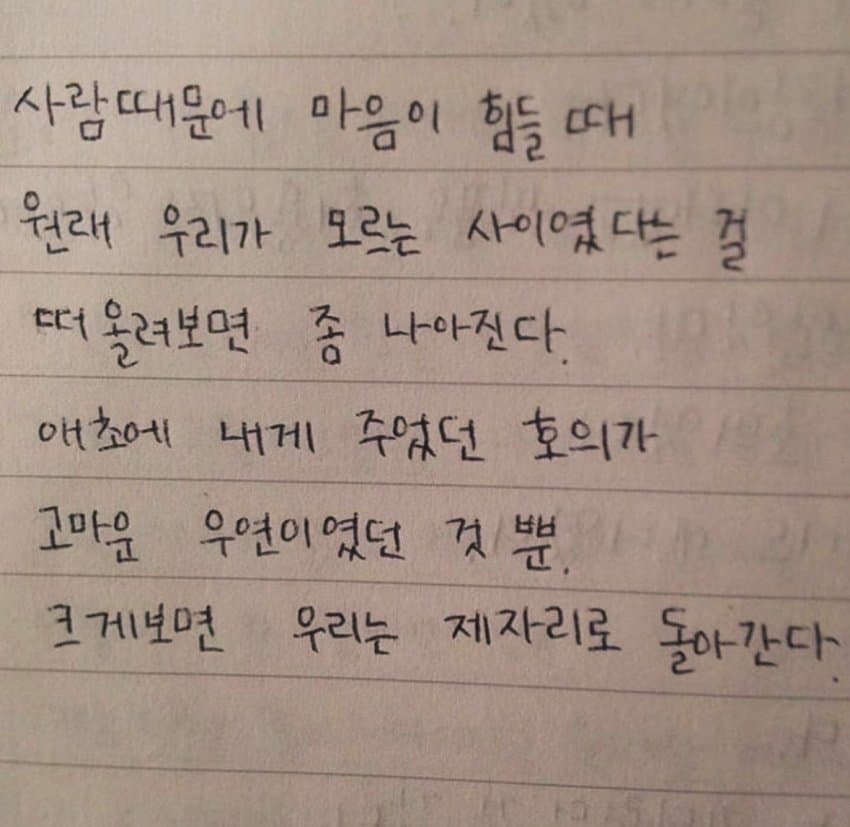 사람때문에 마음이 힘들 때
원래 우리가 모르는 사이였다는 걸
떠올려보면 좀 나아진다.
애초에 내게 주었던 호의가
고마운 우연이였던 것 뿐.
크게보면 우리는 제자리로 돌아간다.